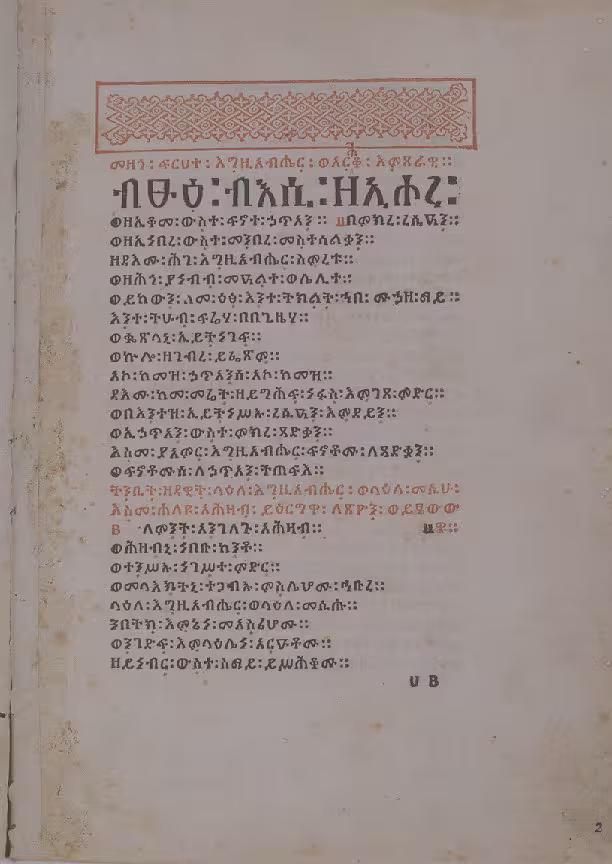 መዘን፡ ፍርሀተ፡ እግዚአብሔር፡
ብፁዕ፡ብእሲ፡ዘኢሖረ፡
ወዘኢቆመ፡ውስተ፡ፍኖተ፡ኃጥአን። በምክረ፡ረሲዓን።
ወዘኢነበረ፡ውስተ፡መንበረ፡መስተሳልቃን።
ዘዳእሙ፡ሕገ፡እግዚአብሔር፡ስምረቱ።
ወዘሕጎ፡ያነብብ፡መዓልተ፡ወሌሊተ።
ወይከውን፡ከመ፡ዕፅ፡እንተ፡ትክልት፡ኀበ፡ ሙኃዘ፡ማይ።
እንተ፡ትሁብ፡ፍሬሃ፡በበጊዜሃ።
ወቈጽላኒ፡ኢይትነገፍ።
ወኵሎ፡ዘገብረ፡ይፌጽም።
አኮ፡ከመዝ፡ኃጥአንሰ፡አኮ፡ከመዝ።
ዳእሙ፡ከመ፡መሬት፡ዘይግሕፍ፡ነፋስ፡እምገጸ፡ምድር።
ወበእንተዝ፡ኢይትነሥኡ፡ረሲዓን፡እምደይን።
ወኢኃጥአን፡ውስተ፡ምክረ፡ጻድቃን።
እስመ፡ያአምር፡እግዚአብሔር፡ፍኖቶሙ፡ለጻድቃን።
ወፍኖቶሙሰ፡ለኃጥአን፡ትጠፍእ።
ትንቢት፡ዘዳዊት፡ላዕለ፡እግዚአብሔር፡ወላዕለ፡መሲሁ፡
እስመ፡ሐለዩ፡አሕዛብ፡ ይዕርግዋ፡ ለጽዮን፡ ወይፄወው
፪ ለምንት፡አንገለጉ፡አሕዛብ። ዋ።
ወሕዝብኒ፡ነበቡ፡ከንቶ።
ወተንሥኡ፡ነገሥተ፡ምድር።
ወመላእክትኒ፡ተጋብኡ፡ምስሌሆሙ፡ኀቡረ።
ላዕለ፡እግዚአብሔር፡ወላዕለ፡መሲሑ።
ንበትክ፡እምኔነ፡መኣስሪሆሙ።
ወንገድፍ፡እምላዕሌነ፡አርዑቶሙ።
ዘይነብር፡ውስተ፡ሰማይ፡ይሥሕቆሙ።
ሀ ፪
2